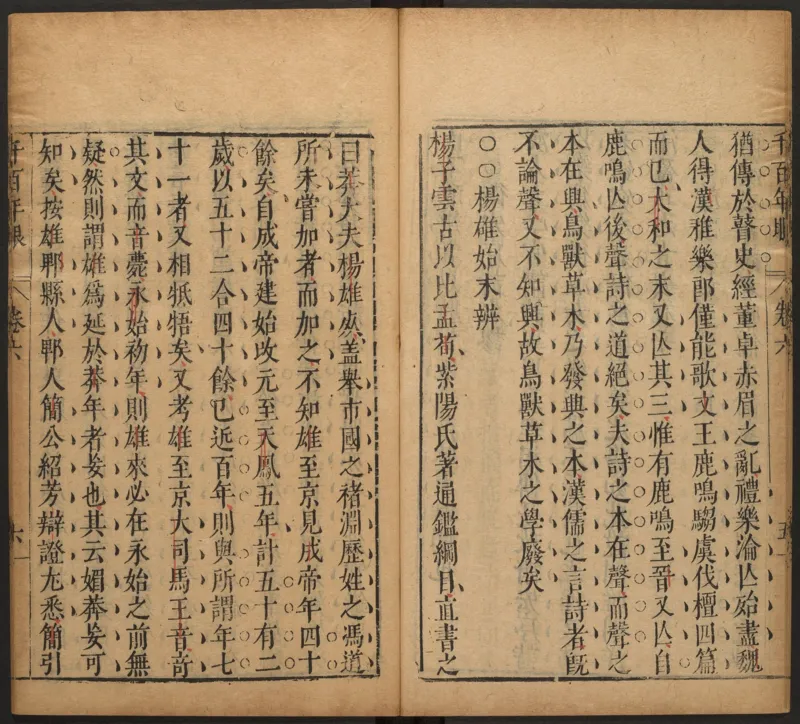 千百年眼 卷六 五
猶傳於瞽史經董卓赤眉之亂禮樂淪亾殆盡魏
人得漢雅樂郎僅能歌文王鹿鳴騶虞伐檀四篇
而已太和之末又亾其三惟有鹿鳴至晉又亾自
鹿鳴亾後聲詩之道絕矣夫詩之本在聲而聲之
本在興鳥獸草木乃發興之本漢儒之言詩者旣
不論聲又不知興故鳥獸草木之學廢矣
○○楊雄始末辨
楊子雲古以比孟荀紫陽氏著通鑑綱目直書之
曰莽大夫楊雄死蓋舉市國之褚淵歷姓之馮道
所未嘗加者而加之不知雄至京見成帝年四十
餘矣自成帝建始改元至天鳳五年計五十有二
歲以五十二合四十餘已近百年則與所謂年七
十一者又相牴牾矣又考雄至京大司馬王音奇
其文而音薨永始初年則雄來必在永始之前無
疑然則謂雄爲延於莽年者妄也其云媚莽妄可
知矣按雄郫縣人郫人簡公紹芳辯證尤悉簡引
千百年眼 卷六 六